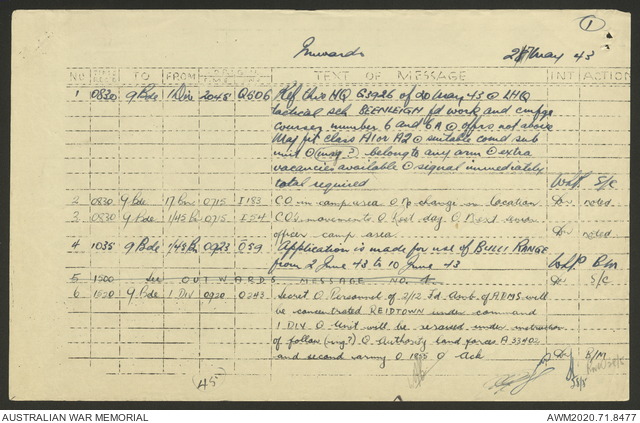 1
Inwards
May 43
NO TO FROM TEXT OF MESSAGE INT ACTION
1 0830 9 Bde 1 Div 2045 Q506 Ref this HQ G3926 of 20 May 43 LHQ
tactical sch BEENLEIGH fd work and
courses number 6 and 6A O offrs not above
Maj fit class A1 or A2 O suitable comd sub
unit O (msg ?) belong to any arm O extra
vacancies available O signal immediately
total required S/C
2 0830 9 Bde 17 Bn 0715 I 183 C.O. in camp area O No change in location. noted
3 0830 9 Bde 1/45 Bn 0715 CO's movements O Last day O Next
officer camp area noted
4 1035 9 Bde 1/45 Bn 0923 O59 Application is made for use of BULLI RANGE
from 2 June 43 to 10 June 43 B.M
5 1500 See OUTWARDS MESSAGE NO. S/C
6 1520 9 Bde 1 DIV 0920 O243 Secret O Personnel of 2/12 Fd Amb of ADMS will
be concentrated REIDTOWN under com and
1 DIV O Unit will be reraised under instruction
of follow (mg?) O Authority land forces A 33402
and second army O 1855 O Ack B/M
(45)
AUSTRALIAN WAR MEMORIAL
AWM2020.71.8477